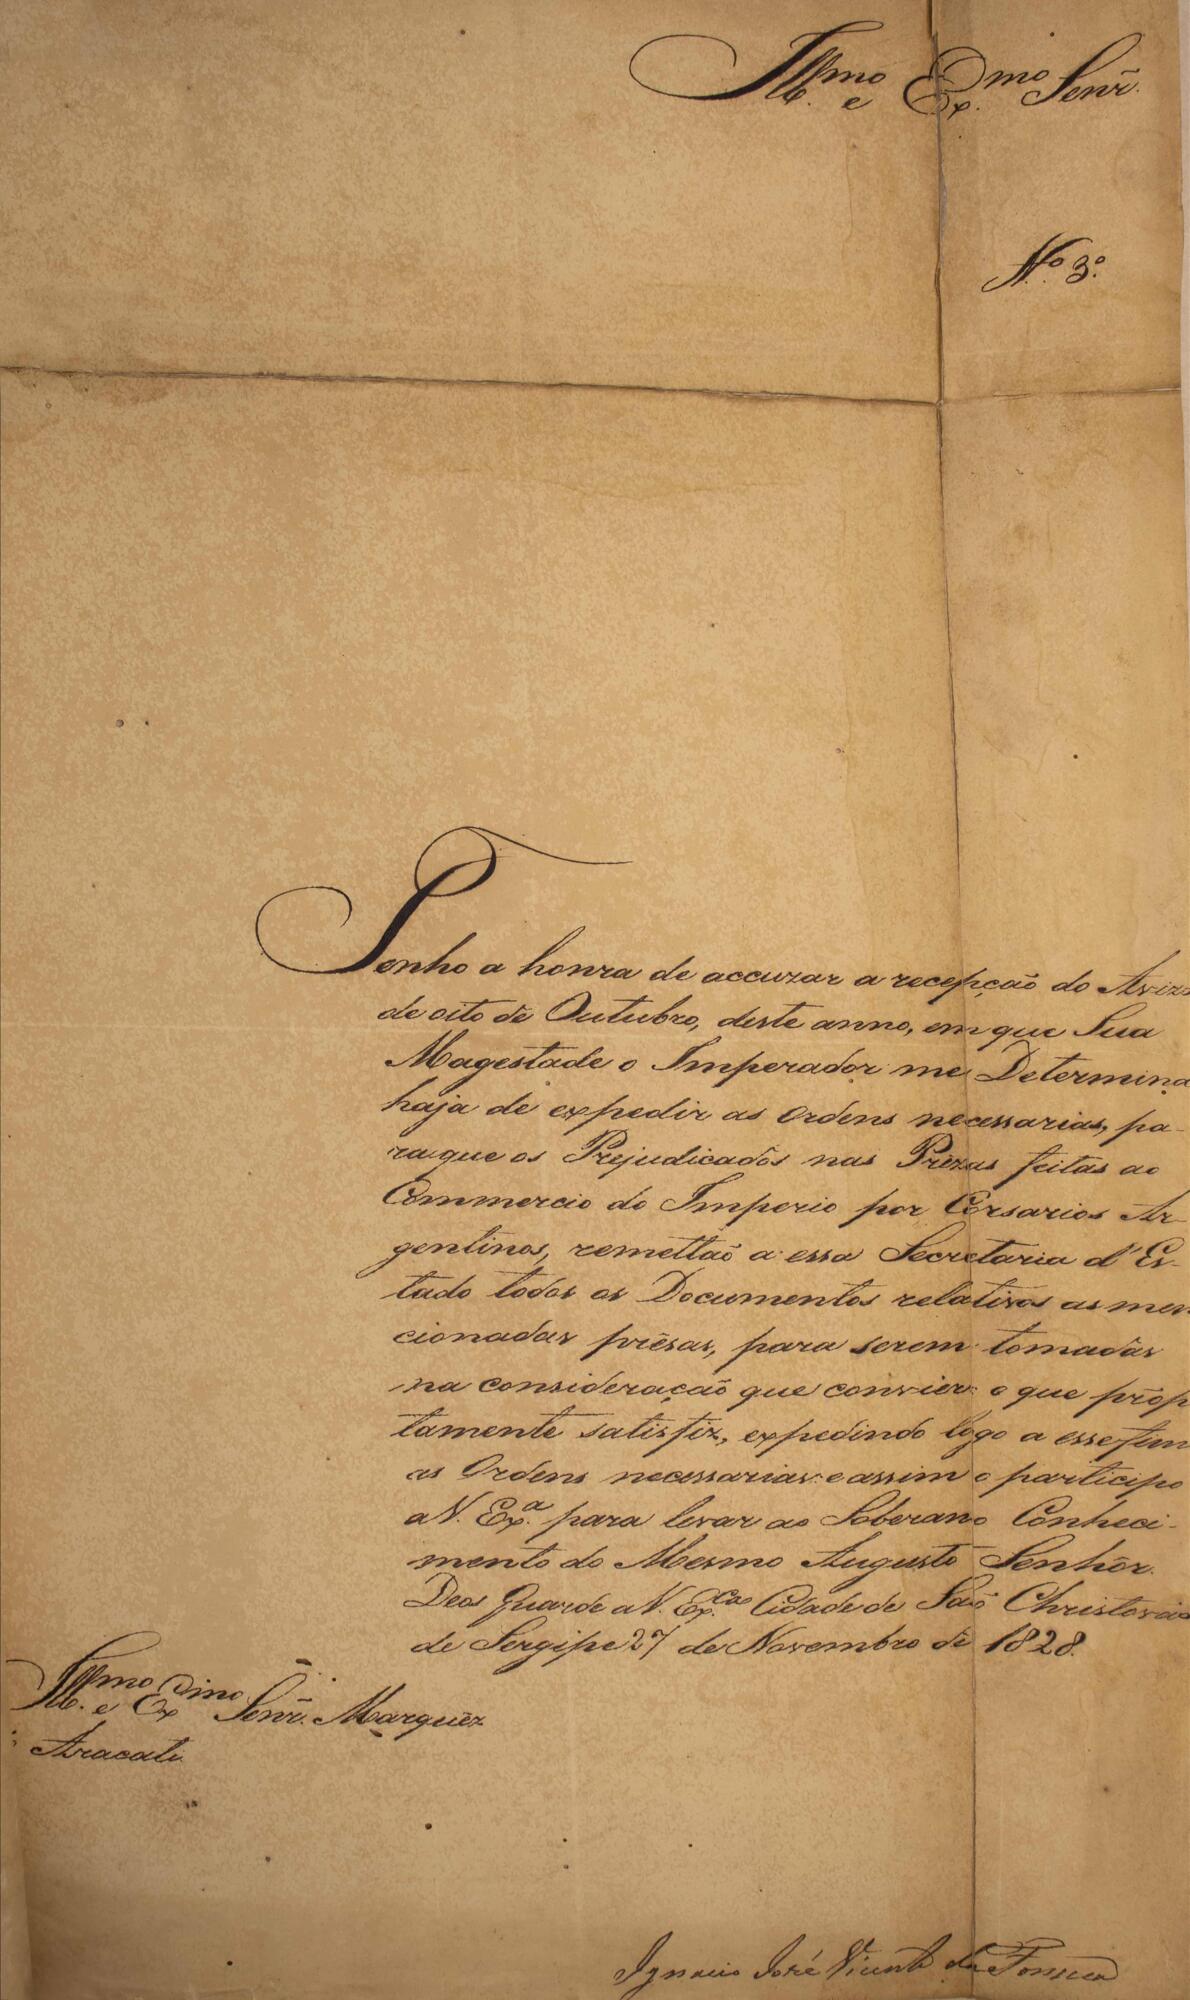 Illmo. e Exmo. Senr̃.
No. 3o.
Tenho a honra de accuzar a recepção do Avizo
de oito de Outubro, deste anno, em que Sua
Magestade o Imperador me Determina
haja de expedir as Ordens necessarias, pa-
raque os Prejudicados nas Prezas feitas ao
Commercio do Imperio por Corsarios Ar-
gentinos, remettão a essa Secretaria d'Es-
tado todos os Documentos relativos as men-
cionadas prêsas, para serem tomadas
na consideração que convier: o que promp-
tamente satisfiz, expedindo logo a esse fim
as Ordens necessarias: e assim o participo
a V. Exa. para levar ao Soberano Conheci-
mento do Mesmo Augusto Senhor.
Deos Guarde a V. Exca. Cidade de São Christovão
de Sergipe 27 de Novembro de 1828.
Illmo. e Exmo. Senr̃. Marquez
Aracati
Ignacio José Vicente da Fonseca